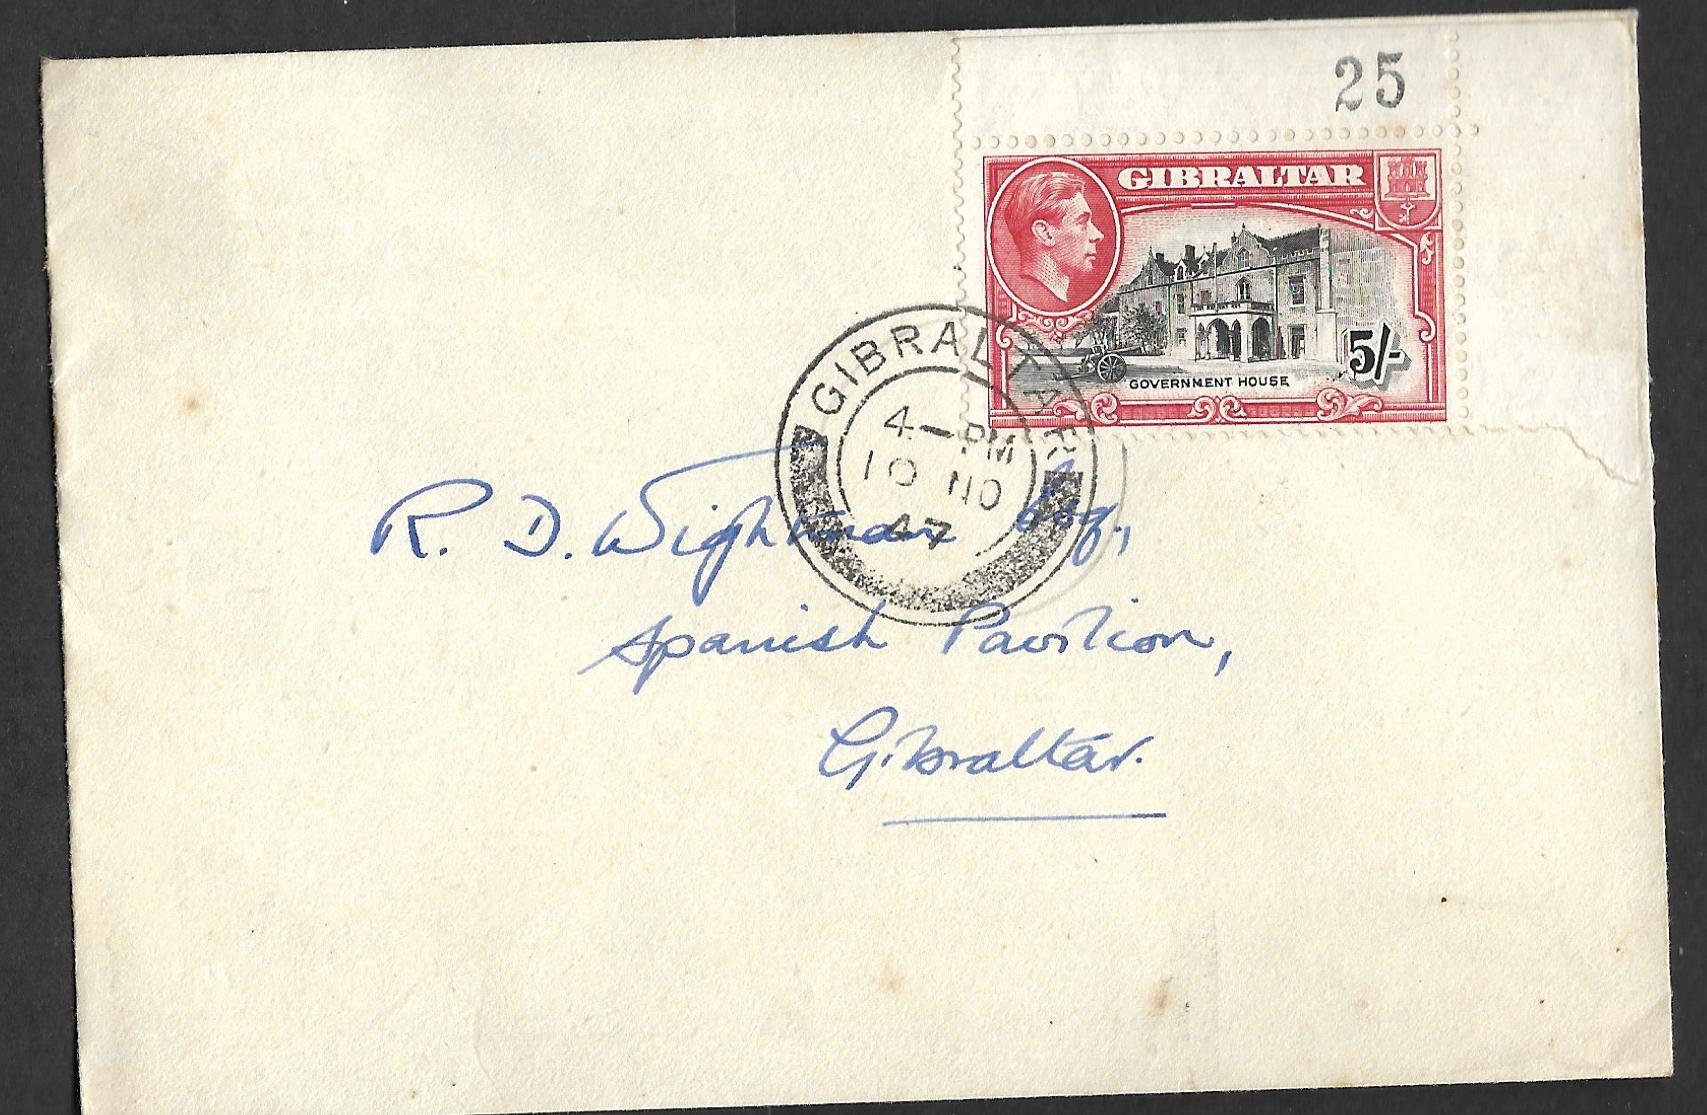 25
GIBRALTAR
5/-
GOVERNMENT HOUSE
GIBRALTAR
4-PM
10 NO
47
R. D. Wightman Esq.,
Spanish Pavilion,
Gibraltar.